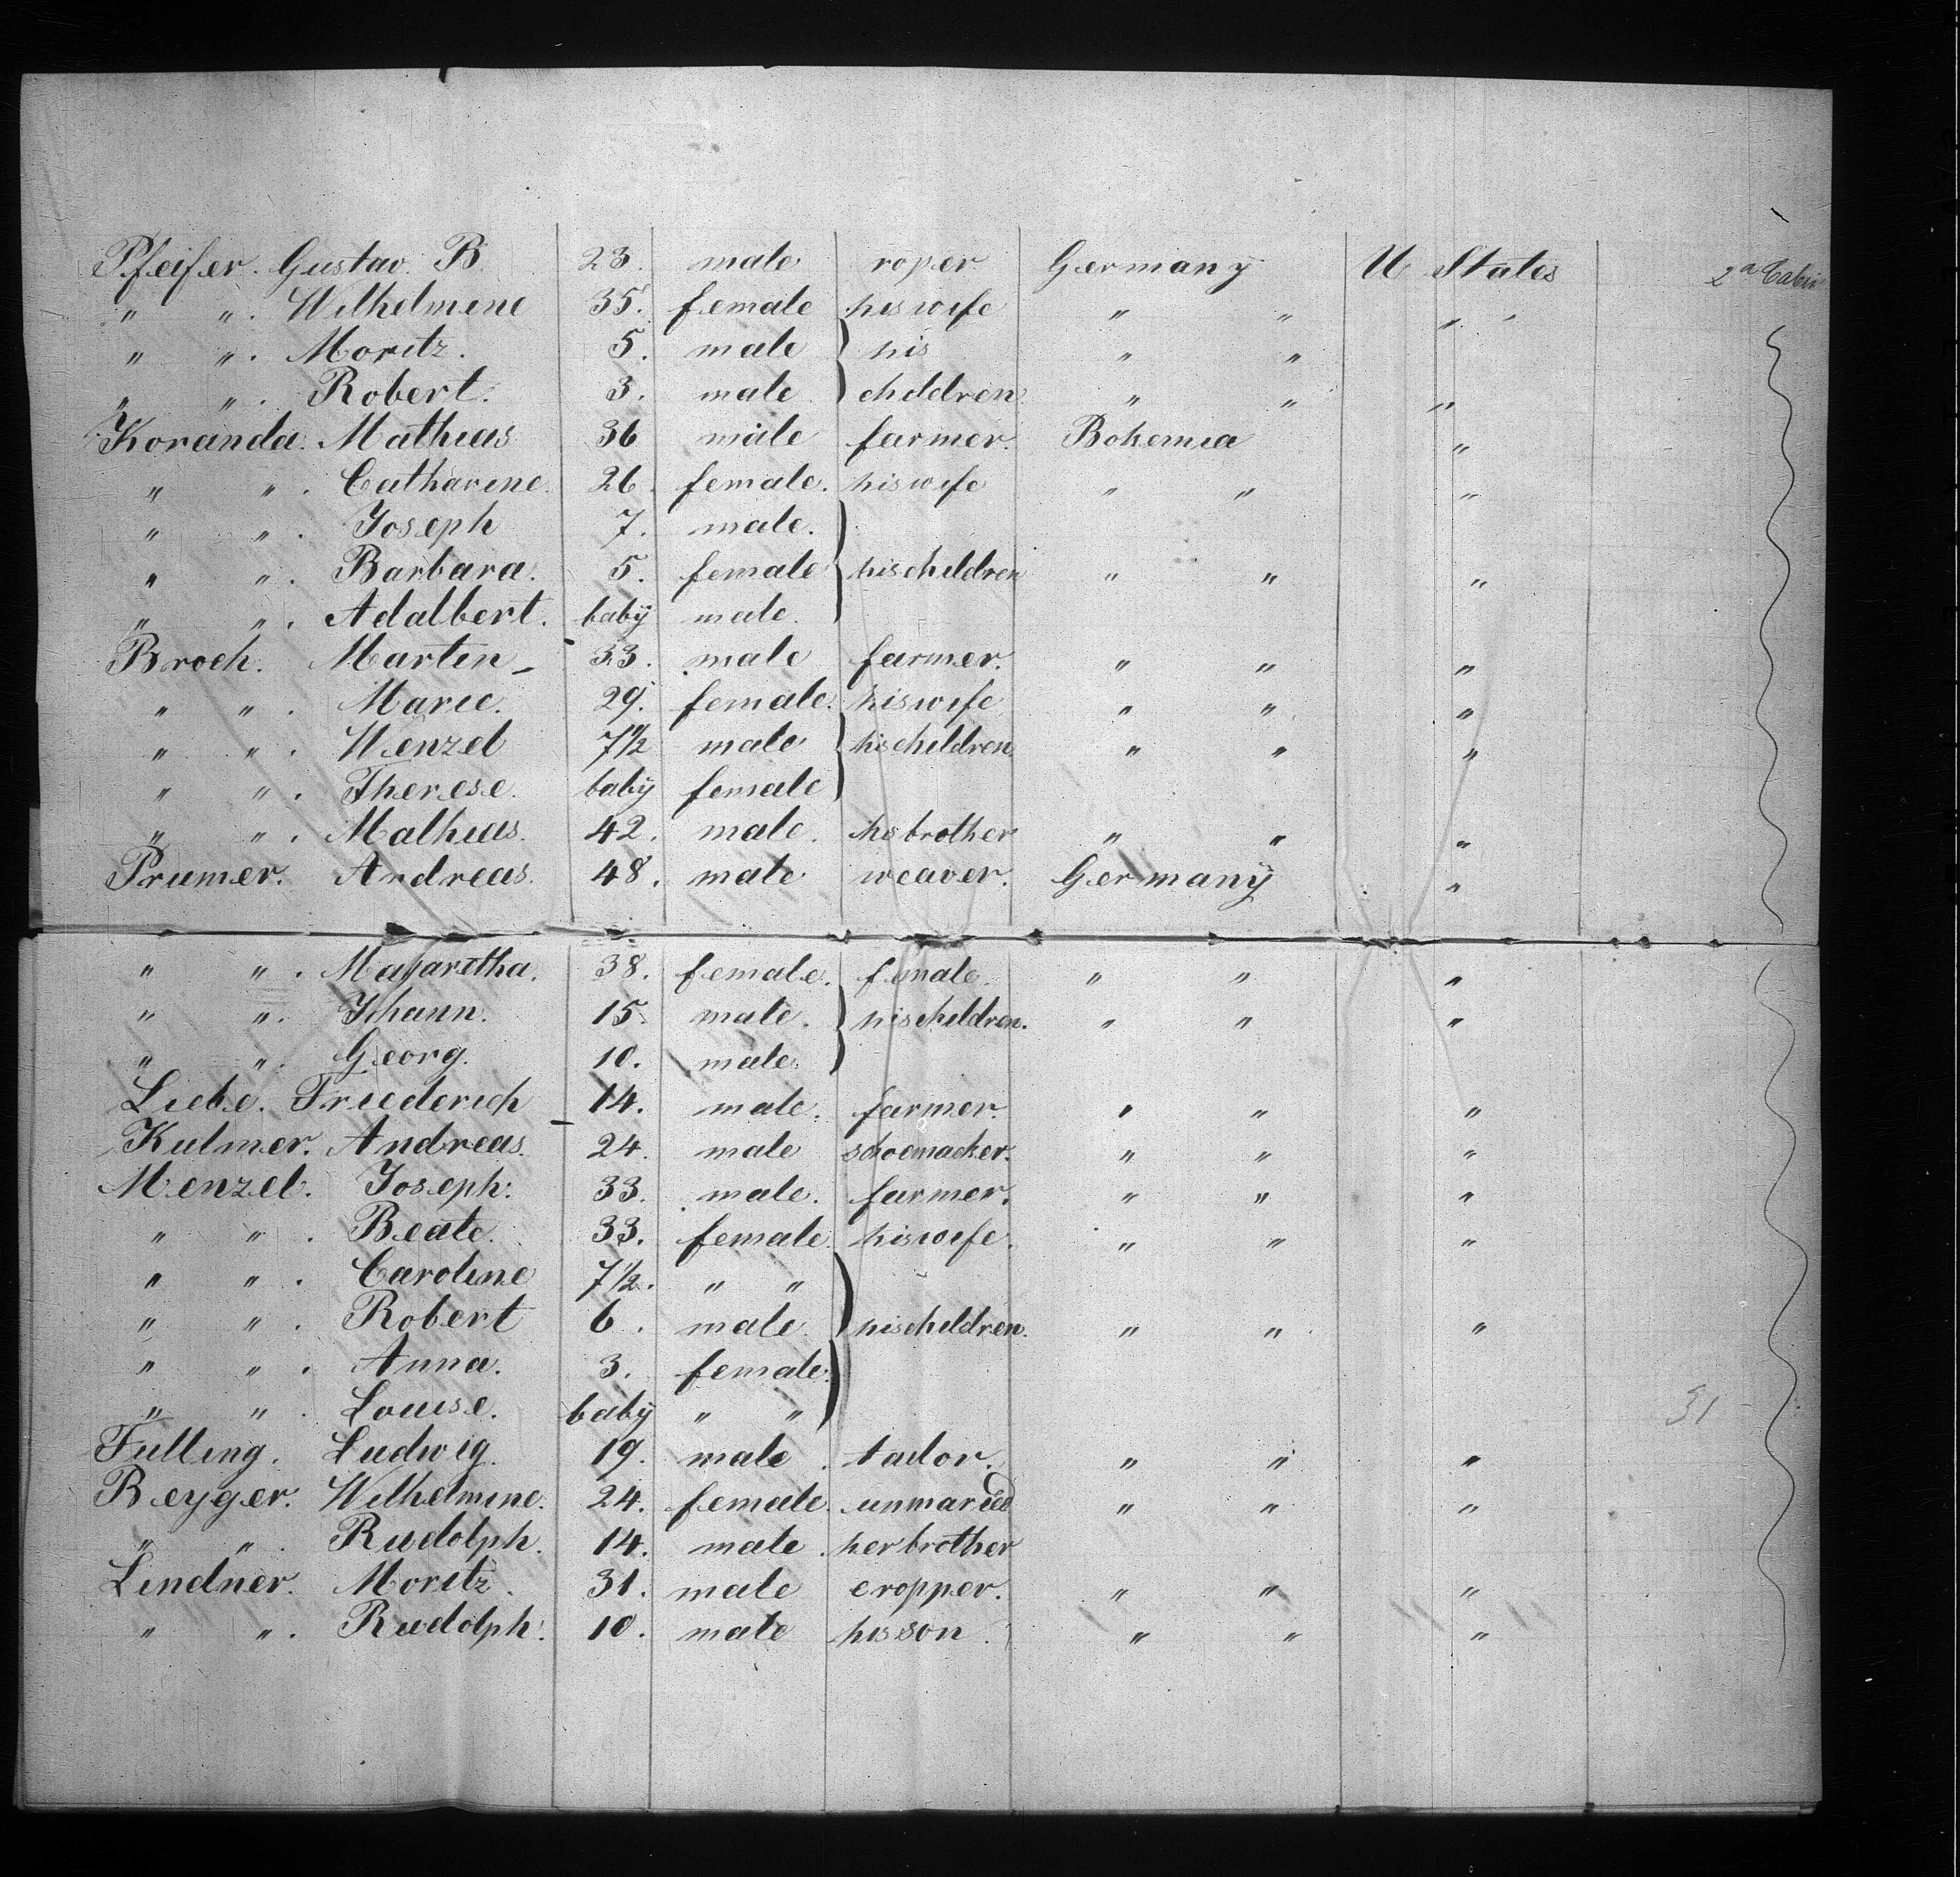 Pfeifer. Gustav. B. 23. male roper Germany U States 2ª Cabin
" " . Wilhelmine 35. female his wife " " "
" " . Moritz. 5. male } his " " "
" " . Robert. 3. male children " " "
Koranda. Mathias 36 male farmer. Bohemia "
" " . Catharine. 26. female. his wife " " "
" " . Joseph 7. male. }
" " . Barbara. 5. female his children " " "
" " . Adalbert. baby male.
Broch. Martin - 33. male farmer. " " "
" " . Marie. 29. female. his wife " " "
" " . Wenzel 7 1/2 male } his children " " "
" " . Therese. baby female
" " . Mathias. 42. male. his brother " " "
Prumer. Andreas. 48. male weaver. Germany "
" " . Magaretha. 38. female. female. " " "
" " . Johann. 15. male. } his children. " " "
" " . Georg. 10. male.
Liebe. Friederich 14. male. farmer. " " "
Kulmer. Andreas. 24. male schoemacker. " " "
Menzel. Joseph. 33. male. farmer. " " "
" " . Beate. 33. female. his wife. " " "
" " . Caroline 7 1/2. " " }
" " . Robert 6. male. his children. " " "
" " . Anna. 3. female. }
" " . Louise. baby " " 31
Fulling. Ludwig. 19. male. tailor. " " "
Beyger. Wilhelmine. 24. female. unmaried " " "
" " . Rudolph. 14. male. her brother
Lindner. Moritz. 31. male cropper. " " "
" " . Rudolph. 10. male his son. " " "